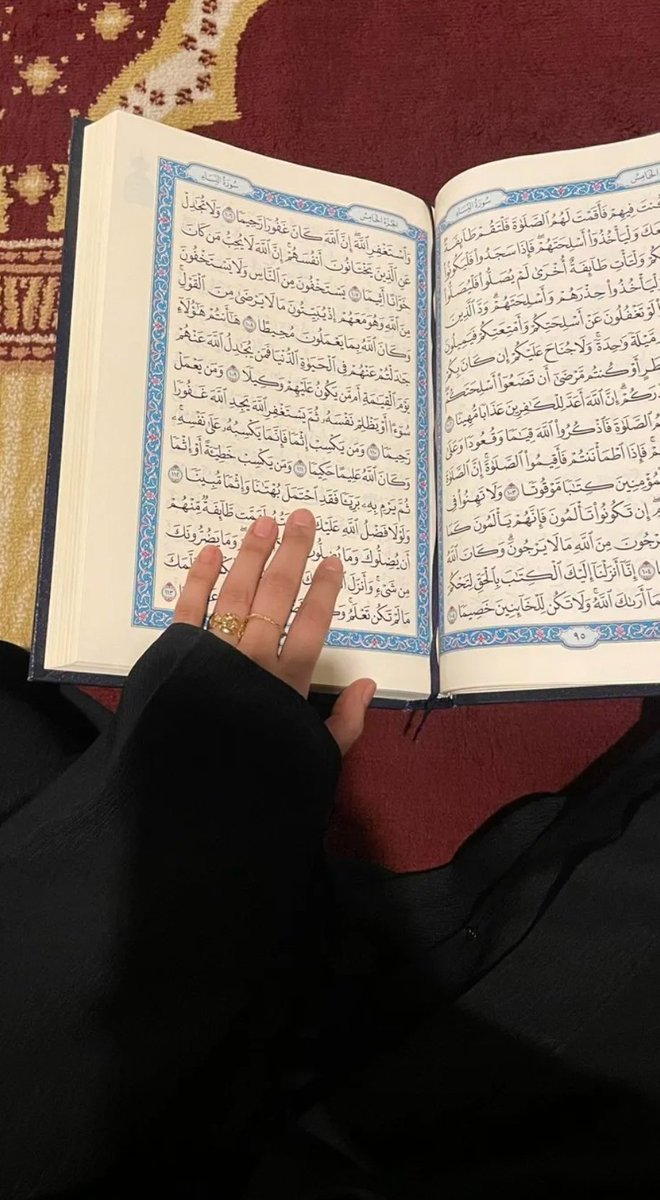 الجزء الخامس سورة النساء
كُنتَ فِيهِمْ فَأَقَمْتَ لَهُمُ ٱلصَّلَوٰةَ فَلْتَقُمْ طَآئِفَةٌ
مَعَكَ وَلْيَأْخُذُوٓا۟ أَسْلِحَتَهُمْ فَإِذَا سَجَدُوا۟ فَلْيَكُونُوا۟
وَلْتَأْتِ طَآئِفَةٌ أُخْرَىٰ لَمْ يُصَلُّوا۟ فَلْيُصَلُّوا۟
وَلْيَأْخُذُوا۟ حِذْرَهُمْ وَأَسْلِحَتَهُمْ ۗ وَدَّ ٱلَّذِينَ
لَوْ تَغْفُلُونَ عَنْ أَسْلِحَتِكُمْ وَأَمْتِعَتِكُمْ فَيَمِيلُونَ
مَّيْلَةً وَٰحِدَةً ۚ وَلَا جُنَاحَ عَلَيْكُمْ إِن كَانَ بِكُمْ
مَّطَرٍ أَوْ كُنتُم مَّرْضَىٰٓ أَن تَضَعُوٓا۟ أَسْلِحَتَكُمْ
حِذْرَكُمْ ۗ إِنَّ ٱللَّهَ أَعَدَّ لِلْكَٰفِرِينَ عَذَابًا مُّهِينًا ١٠٢
ٱلصَّلَوٰةَ فَٱذْكُرُوا۟ ٱللَّهَ قِيَٰمًا وَقُعُودًا وَعَلَىٰ
فَإِذَا ٱطْمَأْنَنتُمْ فَأَقِيمُوا۟ ٱلصَّلَوٰةَ ۚ إِنَّ ٱلصَّلَوٰةَ
ٱلْمُؤْمِنِينَ كِتَٰبًا مَّوْقُوتًا ١٠٣ وَلَا تَهِنُوا۟ فِى
إِن تَكُونُوا۟ تَأْلَمُونَ فَإِنَّهُمْ يَأْلَمُونَ كَمَا
وَتَرْجُونَ مِنَ ٱللَّهِ مَا لَا يَرْجُونَ ۗ وَكَانَ ٱللَّهُ
١٠٤ إِنَّآ أَنزَلْنَآ إِلَيْكَ ٱلْكِتَٰبَ بِٱلْحَقِّ لِتَحْكُمَ
بِمَآ أَرَىٰكَ ٱللَّهُ ۚ وَلَا تَكُن لِّلْخَآئِنِينَ خَصِيمًا ١٠٥
٩٥
الجزء الخامس سورة النساء
وَٱسْتَغْفِرِ ٱللَّهَ ۖ إِنَّ ٱللَّهَ كَانَ غَفُورًا رَّحِيمًا ١٠٦ وَلَا تُجَٰدِلْ
عَنِ ٱلَّذِينَ يَخْتَانُونَ أَنفُسَهُمْ ۚ إِنَّ ٱللَّهَ لَا يُحِبُّ مَن كَانَ
خَوَّانًا أَثِيمًا ١٠٧ يَسْتَخْفُونَ مِنَ ٱلنَّاسِ وَلَا يَسْتَخْفُونَ
مِنَ ٱللَّهِ وَهُوَ مَعَهُمْ إِذْ يُبَيِّتُونَ مَا لَا يَرْضَىٰ مِنَ ٱلْقَوْلِ ۚ
وَكَانَ ٱللَّهُ بِمَا يَعْمَلُونَ مُحِيطًا ١٠٨ هَٰٓأَنتُمْ هَٰٓؤُلَآءِ
جَٰدَلْتُمْ عَنْهُمْ فِى ٱلْحَيَوٰةِ ٱلدُّنْيَا فَمَن يُجَٰدِلُ ٱللَّهَ عَنْهُمْ
يَوْمَ ٱلْقِيَٰمَةِ أَم مَّن يَكُونُ عَلَيْهِمْ وَكِيلًا ١٠٩ وَمَن يَعْمَلْ
سُوٓءًا أَوْ يَظْلِمْ نَفْسَهُۥ ثُمَّ يَسْتَغْفِرِ ٱللَّهَ يَجِدِ ٱللَّهَ غَفُورًا
رَّحِيمًا ١١٠ وَمَن يَكْسِبْ إِثْمًا فَإِنَّمَا يَكْسِبُهُۥ عَلَىٰ نَفْسِهِۦ ۚ
وَكَانَ ٱللَّهُ عَلِيمًا حَكِيمًا ١١١ وَمَن يَكْسِبْ خَطِيٓـَٔةً أَوْ إِثْمًا
ثُمَّ يَرْمِ بِهِۦ بَرِيٓـًٔا فَقَدِ ٱحْتَمَلَ بُهْتَٰنًا وَإِثْمًا مُّبِينًا ١١٢
وَلَوْلَا فَضْلُ ٱللَّهِ عَلَيْكَ لَهَمَّت طَّآئِفَةٌ مِّنْهُمْ
أَن يُضِلُّوكَ وَمَا يُضِلُّونَ وَمَا يَضُرُّونَكَ
مِن شَىْءٍ ۚ وَأَنزَلَ
مَا لَمْ تَكُن تَعْلَمُ ۚ ١١٣